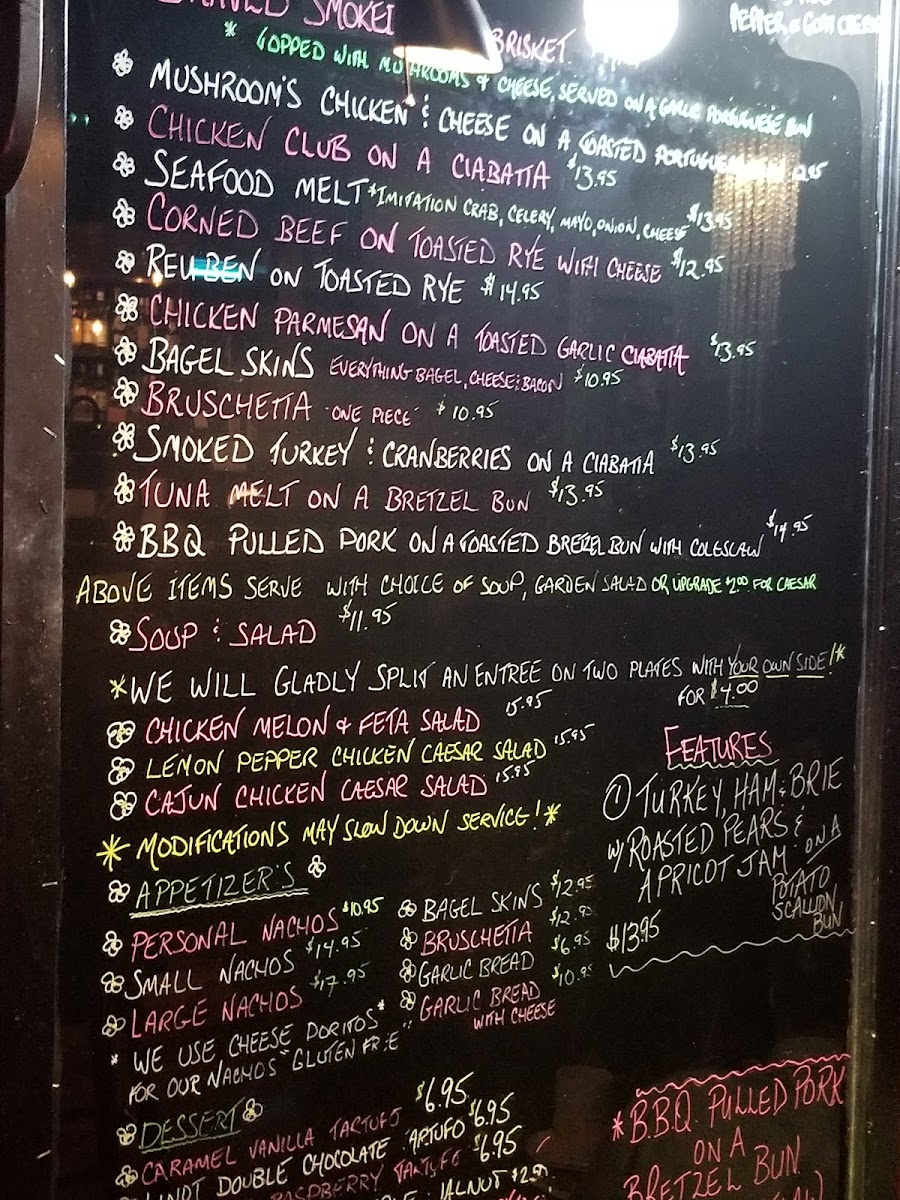 SMOKED BRISKET
PEPPER & GOAT CHEESE
* TOPPED WITH MUSHROOMS & CHEESE, SERVED ON A GARLIC PORTUGUESE BUN
MUSHROOM'S CHICKEN & CHEESE ON A TOASTED PORTUGUESE BUN 12.95
CHICKEN CLUB ON A CIABATTA $13.95
SEAFOOD MELT *IMITATION CRAB, CELERY, MAYO, ONION, CHEESE $13.95
CORNED BEEF ON TOASTED RYE WITH CHEESE $12.95
REUBEN ON TOASTED RYE $14.95
CHICKEN PARMESAN ON A TOASTED GARLIC CIABATTA $13.95
BAGEL SKINS EVERYTHING BAGEL, CHEESE & BACON $10.95
BRUSCHETTA "ONE PIECE" $10.95
SMOKED TURKEY & CRANBERRIES ON A CIABATTA $13.95
TUNA MELT ON A BRETZEL BUN $13.95
BBQ PULLED PORK ON A TOASTED BRETZEL BUN WITH COLESLAW $14.95
ABOVE ITEMS SERVE WITH CHOICE OF SOUP, GARDEN SALAD OR UPGRADE $2.00 FOR CAESAR
SOUP & SALAD $11.95
*WE WILL GLADLY SPLIT AN ENTREE ON TWO PLATES WITH YOUR OWN SIDE!*
FOR $4.00
CHICKEN MELON & FETA SALAD 15.95
LEMON PEPPER CHICKEN CAESAR SALAD 15.95
CAJUN CHICKEN CAESAR SALAD 15.95
* MODIFICATIONS MAY SLOW DOWN SERVICE! *
FEATURES
① TURKEY, HAM & BRIE
W/ ROASTED PEARS &
APRICOT JAM ON A
POTATO
SCALLION
BUN
$13.95
APPETIZER'S
PERSONAL NACHOS $10.95
SMALL NACHOS $14.95
LARGE NACHOS $17.95
* WE USE CHEESE DORITOS *
FOR OUR NACHOS "GLUTEN FREE"
BAGEL SKINS $12.95
BRUSCHETTA $12.95
GARLIC BREAD $6.95
GARLIC BREAD $10.95
WITH CHEESE
DESSERT
CARAMEL VANILLA TARTUFO $6.95
LINDT DOUBLE CHOCOLATE TARTUFO $6.95
RASPBERRY TARTUFO $6.95
$2.50
*B.B.Q. PULLED PORK
ON A
BRETZEL BUN